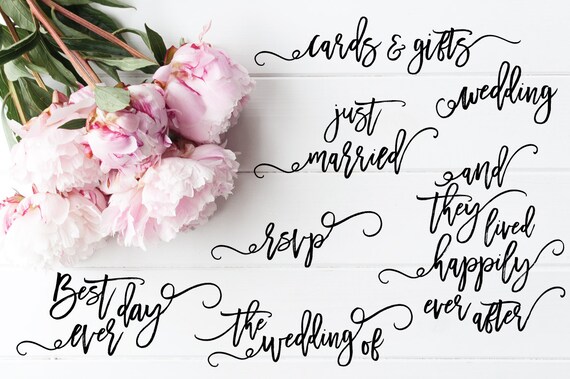 cards & gifts
wedding
just
married
and
they lived
happily
ever after
rsvp
Best day
ever
the
wedding of